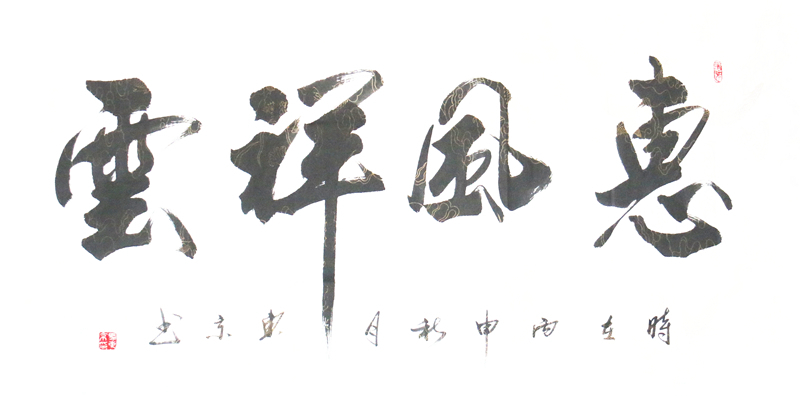 惠風祥雲
時在丙申秋月東京书